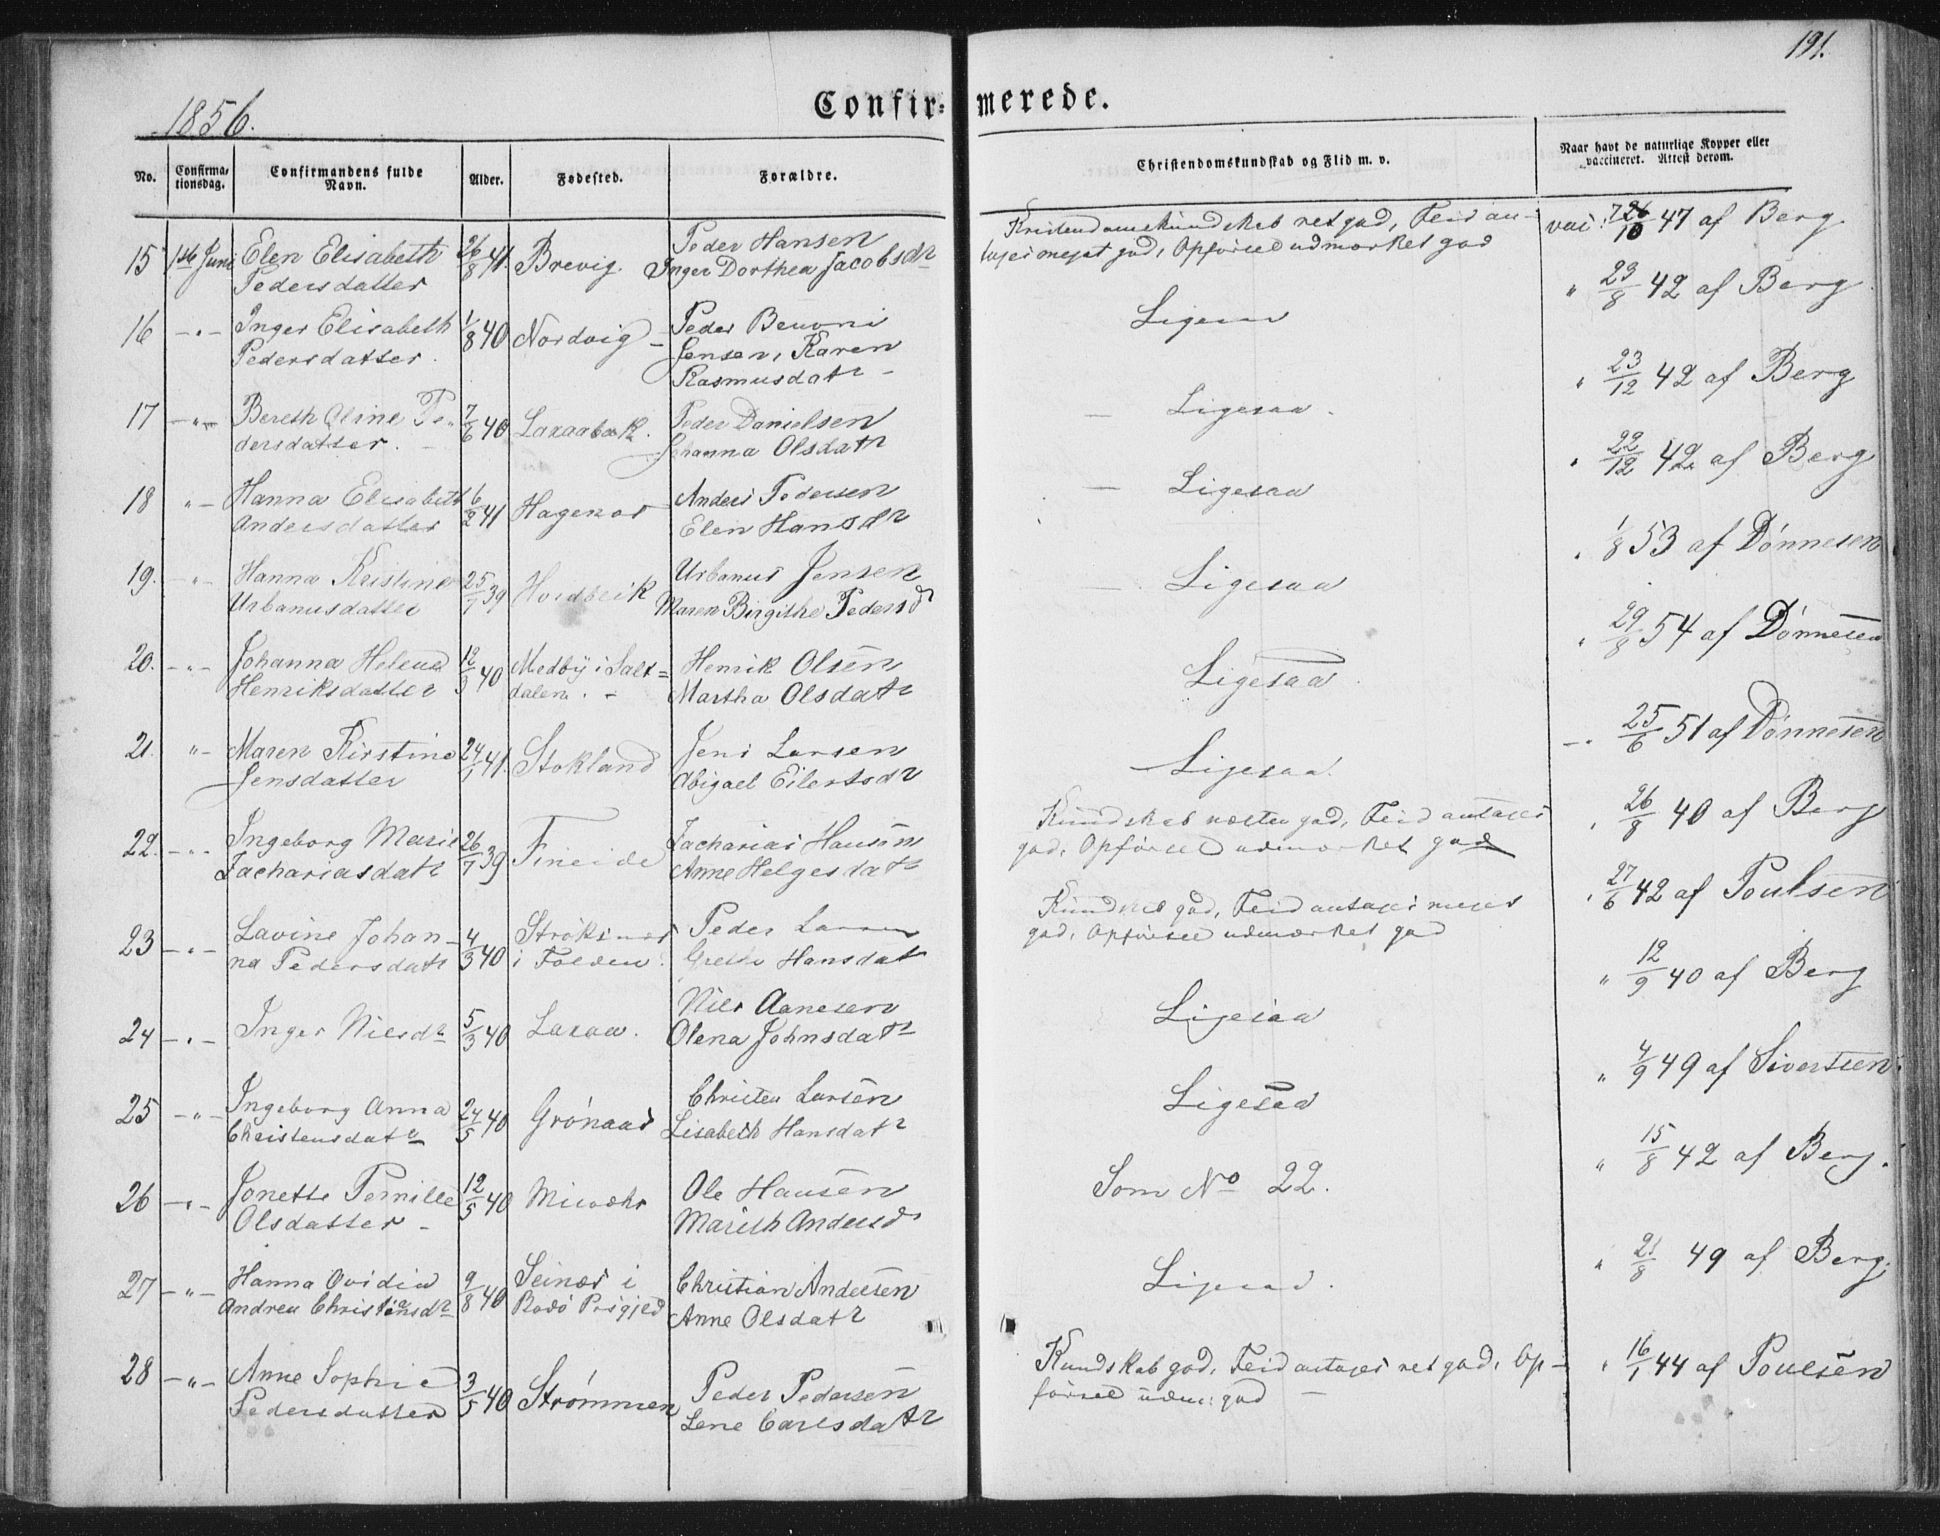 191.
1856.
Confir= merede.
No.
Confirma-
tionsdag.
Confirmandens fulde
Navn.
Alder.
Fødested.
Forældre.
Christendomskundskab og Flid m. v.
Naar havt de naturlige Kopper eller
vaccineret. Attest derom.
15 1ste Juni Elen Elisabeth 26/8 41. Brevig. Peder Hansen
Pedersdatter Inger Dorthea Jacobsdr
Kristendomskundskab ret god, Flid an-
tages meget god, Opførsel udmærket god
vac: 26/10 47 af Berg.
16 -"- Inger Elisabeth 1/8 40 Nordvig - Peder
Pedersdatter. Jensen, Karen
Rasmusdatr -
Ligesaa
" 23/8 42 af Berg
17 -"- Bereth Oline Pe- 7/6 40 Laxaabak. Peder Danielsen
dersdatter. - Johanna Olsdatr
- Ligesaa.
" 23/12 42 af Berg
18 "- Hanna Elisabeth 6/2 41 Anders Pedersen
Andersdatter Elen Hansdr
- Ligesaa
" 22/12 42 af Berg
19. -"- Hanna Kristine 25/7 39 Urbanus Jensen
Urbanusdatter Maren Birgithe Pedersd
- Ligesaa
" 1/8 53 af Dønnesen
20. -"- Johanna Helena 12/3 40 Medby i Salt= Henrik Olsen
Henriksdatter dalen. - Martha Olsdatr
Ligesaa.
" 29/8 54 af Dønnesen
21. "- Maren Kirstine 24/1 41. Stokland Jens Larsen
Jensdatter Abigael Eilertsdr
Ligesaa.
-" 25/6 51 af Dønnesen
22. -"- Ingeborg Marie 26/7 39 Fineide Zacharias Hansen
Zachariasdatr Anne Helgesdatr
Kundskab næsten god, Flid antages
god, Opførsel udmærket god
" 26/8 40 af Berg
23 -"- Lavine Johan- 4/3 40 Strøksnes Peder Larsen
na Pedersdatr i Folden. Grethe Hansdat
Kundskab god, Flid antages meget
god, Opførsel udmærket god
" 27/6 42 af Poulsen
24 -"- Inger Nilsdr 5/3 40 Laxaa. Nils Aanesen
Olena Johnsdatr
Ligesaa
" 12/9 40 af Berg
25 -"- Ingeborg Anna 24/5 40 Grønaas Christen Larsen
Christensdatr Lisabeth Hansdatr
Ligesaa
" 4/9 49 af Sivertsen.
26 -"- Jonette Pernille 12/5 40 Ole Hansen
Olsdatter - Mareth Andersd
Som No 22.
" 15/8 42 af Berg.
27 -"- Hanna Ovidia 9/8 40 Seinæs i Christian Andersen
Andrea Christiansdr Rødø Prsgjed Anne Olsdatr
Ligesaa.
" 21/8 49 af Berg.
28 -"- Anne Sophie 3/5 40 Strømmen Peder Pedersen
Pedersdatter Lene Carlsdatr
Kundskab god, Flid antages ret god, Op-
førsel udm: god -
" 16/1 44 af Poulsen